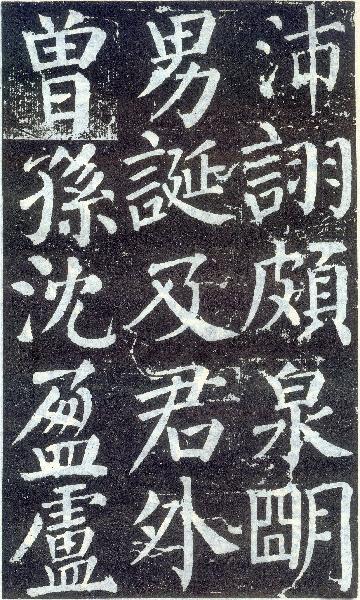 沛詡頗泉明
男誕及君外
曾孫沈盈盧